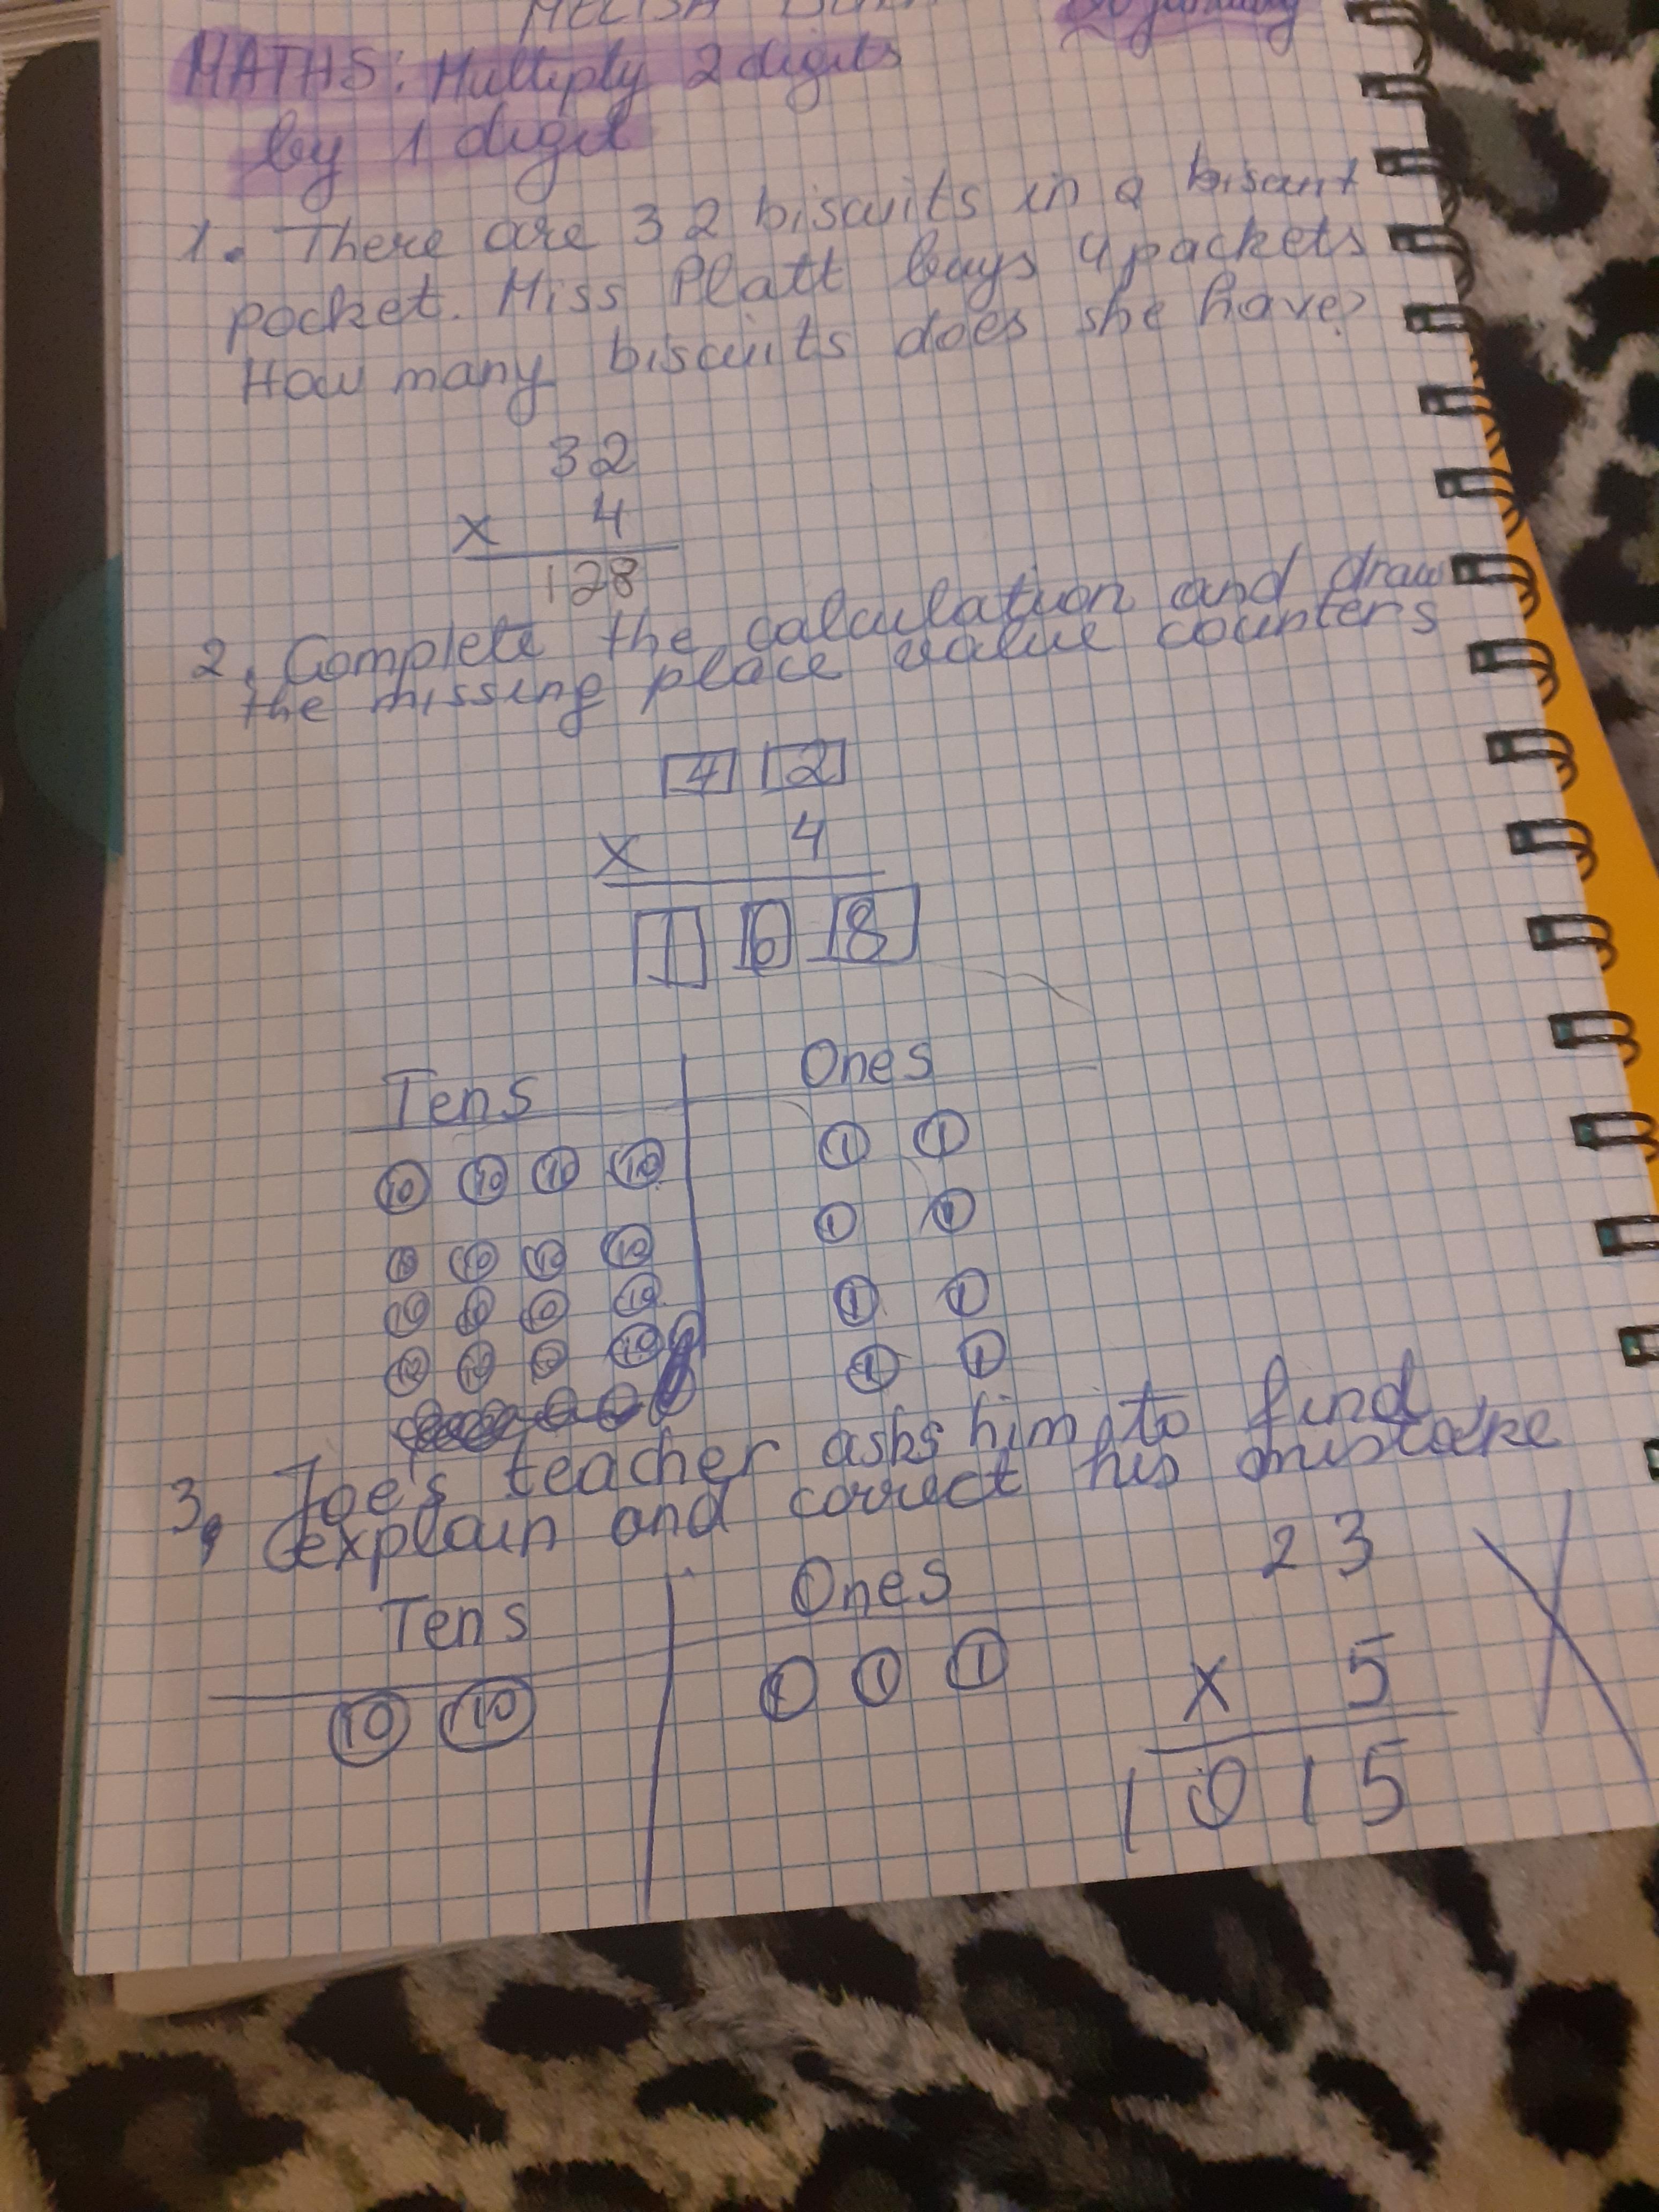 MELISA
20 january
MATHS: Multiply 2 digits
by 1 digit
1. There are 32 biscuits in a biscuit
pocket. Miss Platt buys 4 packets
How many biscuits does she have?
32
x 4
128
2. Complete the calculation and draw
the missing place value counters
4 2
x 4
1 6 8
Tens Ones
10 10 10 10 1 1
10 10 10 10 1 1
10 10 10 10 1 1
10 10 10 10 1 1
3. Joe's teacher asks him to find
explain and correct his mistake
Tens Ones
10 10 1 1 1
23
x 5
1015